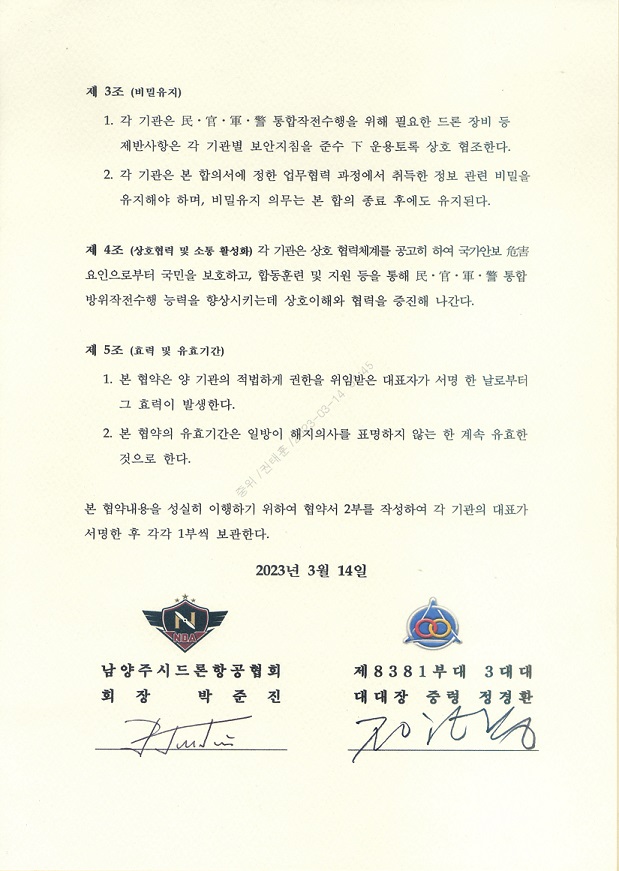 제 3조 (비밀유지)
1. 각 기관은 民·官·軍·警 통합작전수행을 위해 필요한 드론 장비 등
제반사항은 각 기관별 보안지침을 준수 下 운용토록 상호 협조한다.
2. 각 기관은 본 합의서에 정한 업무협력 과정에서 취득한 정보 관련 비밀을
유지해야 하며, 비밀유지 의무는 본 합의 종료 후에도 유지된다.
제 4조 (상호협력 및 소통 활성화) 각 기관은 상호 협력체계를 공고히 하여 국가안보 危害
요인으로부터 국민을 보호하고, 합동훈련 및 지원 등을 통해 民·官·軍·警 통합
방위작전수행 능력을 향상시키는데 상호이해와 협력을 증진해 나간다.
제 5조 (효력 및 유효기간)
1. 본 협약은 양 기관의 적법하게 권한을 위임받은 대표자가 서명 한 날로부터
그 효력이 발생한다.
2. 본 협약의 유효기간은 일방이 해지의사를 표명하지 않는 한 계속 유효한
것으로 한다.
중위 /전태훈 /2023-03-14
본 협약내용을 성실히 이행하기 위하여 협약서 2부를 작성하여 각 기관의 대표가
서명한 후 각각 1부씩 보관한다.
2023년 3월 14일
N
NDA
남양주시드론항공협회
회 장 박 준 진
제8381부대 3대대
대대장 중령 정경환